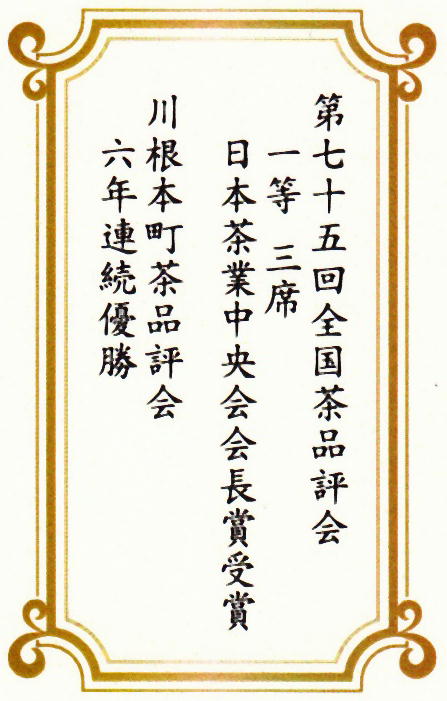 第七十五回全国茶品評会
一等 三席
日本茶業中央会会長賞受賞
川根本町茶品評会
六年連続優勝